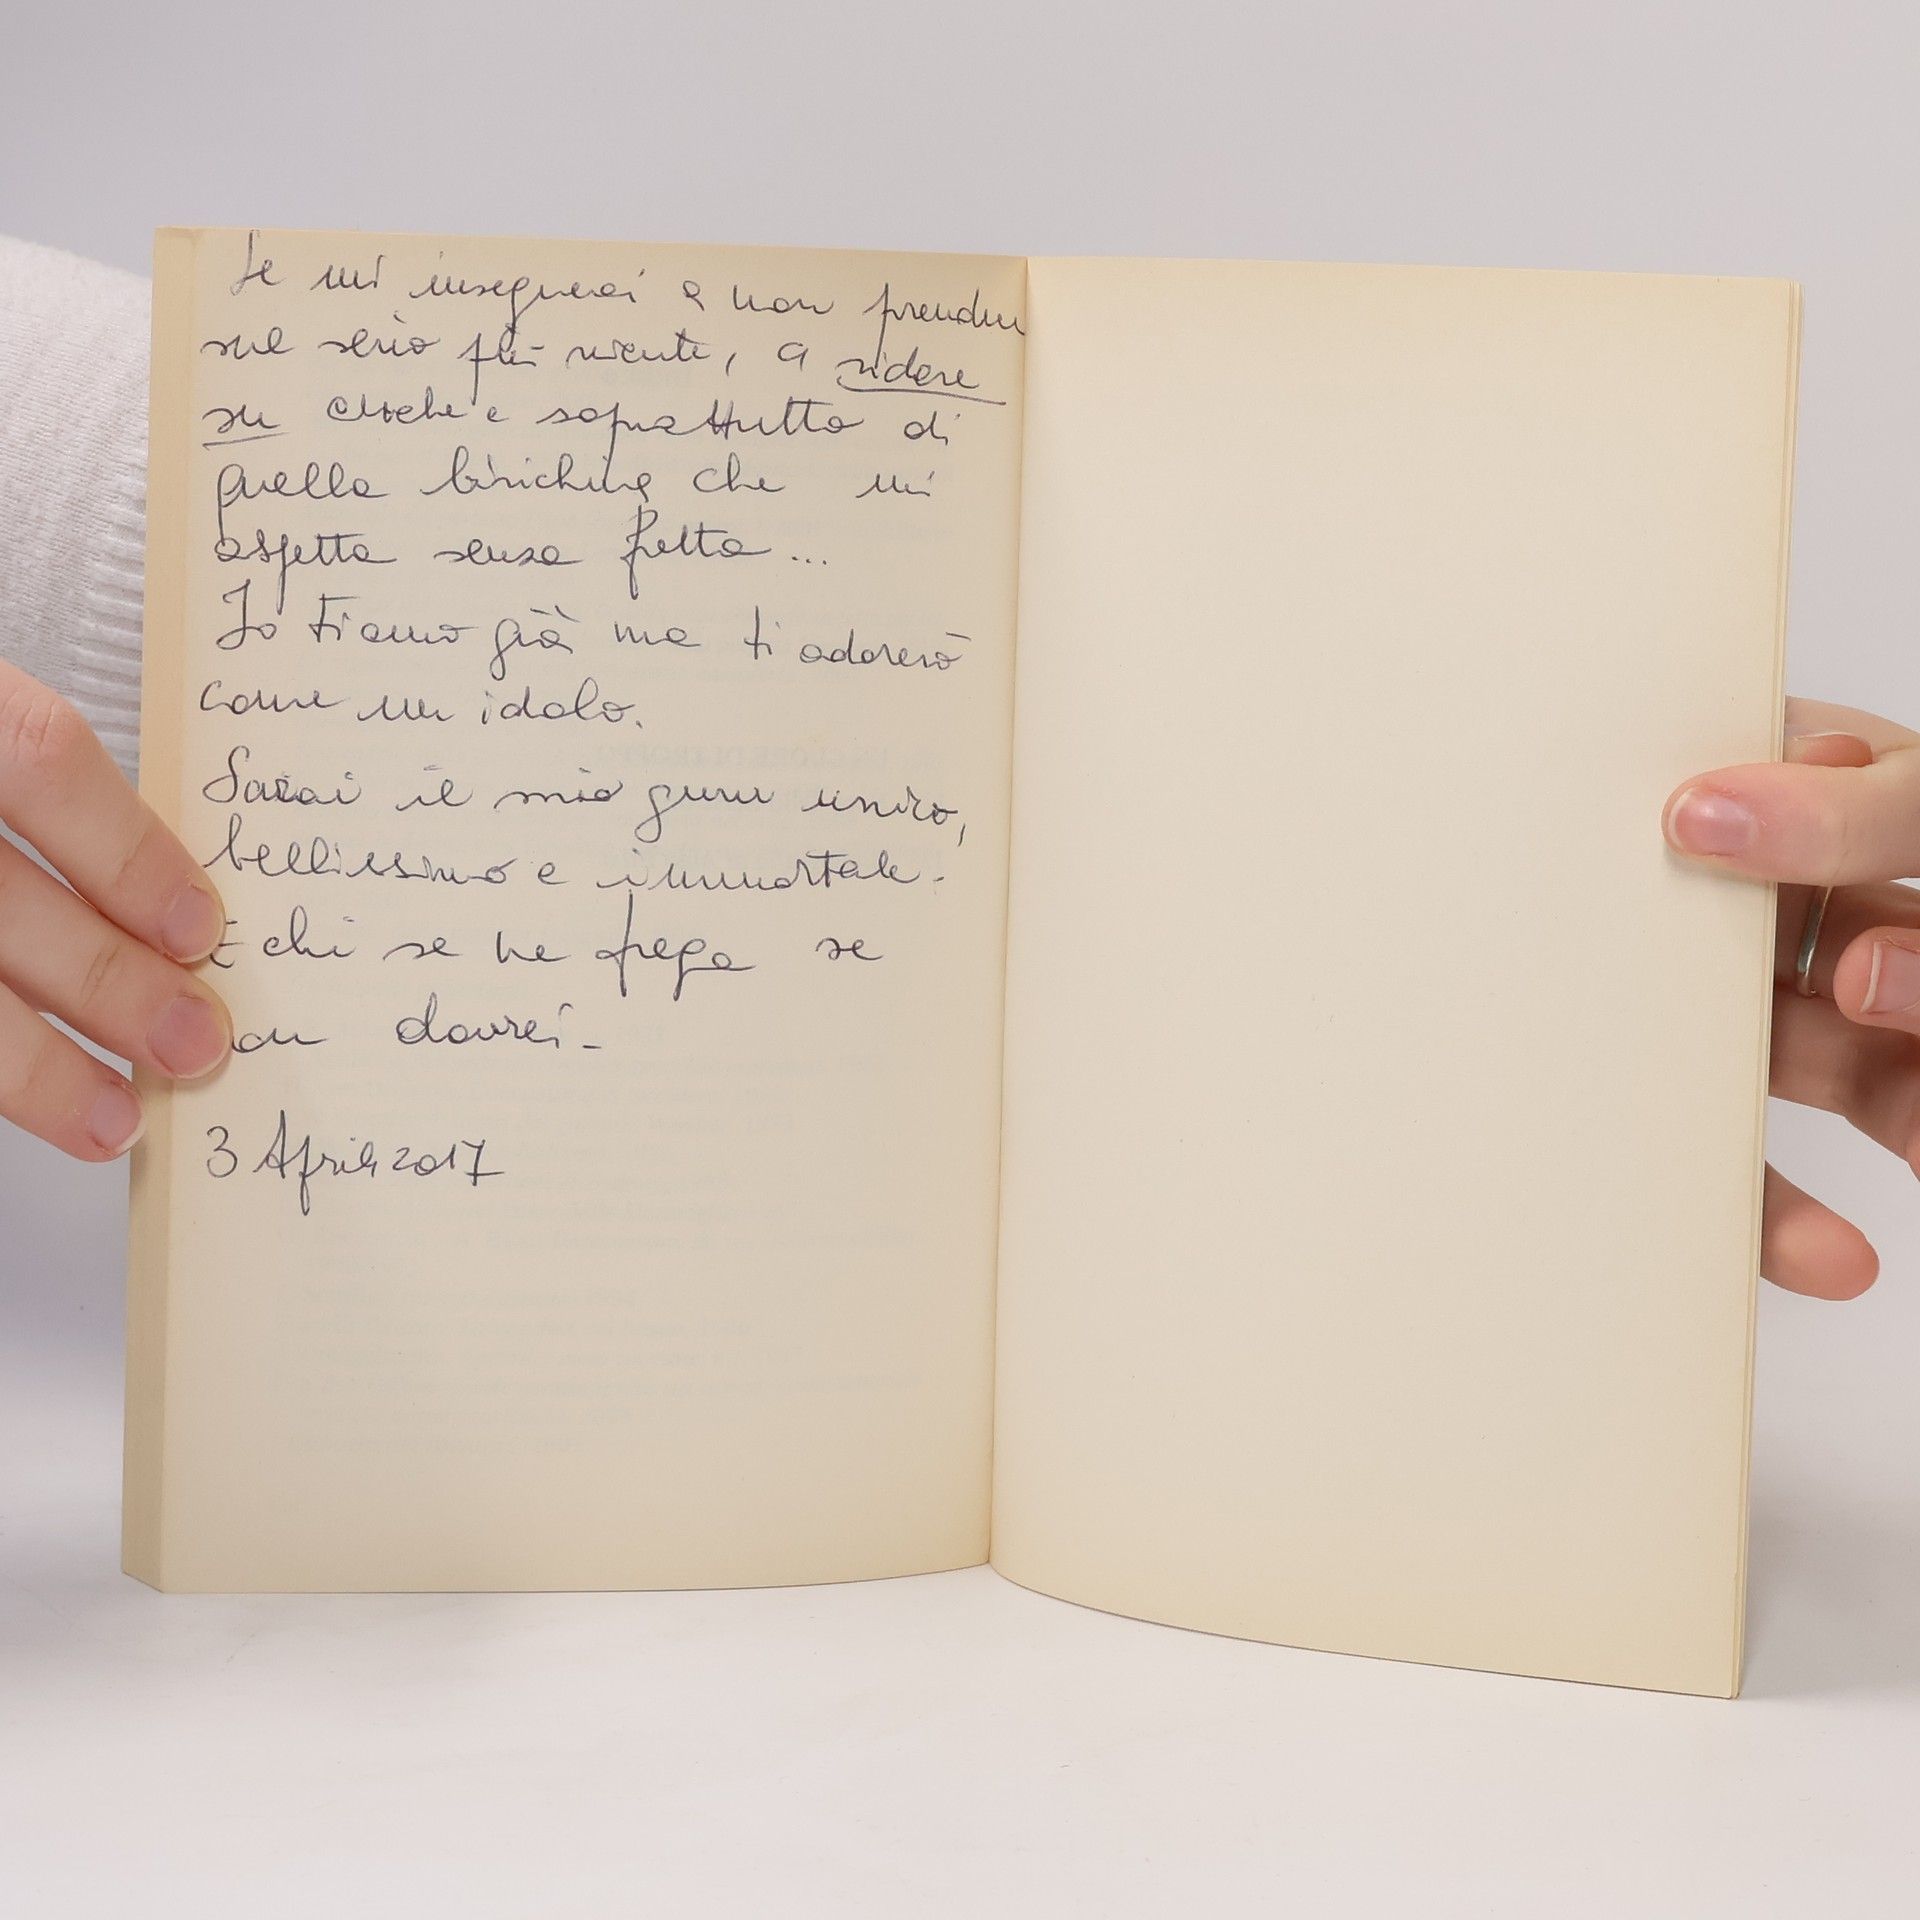 Se mi insegnerai a non prendere
sul serio più niente, a ridere
su anche e soprattutto di
quella birichina che mi
aspetta senza fretta...
Io ti amo già ma ti adorerò
come un idolo.
Sarai il mio guru unico,
bellissimo e immortale.
E chi se ne frega se
non dovrei.
3 Aprile 2017